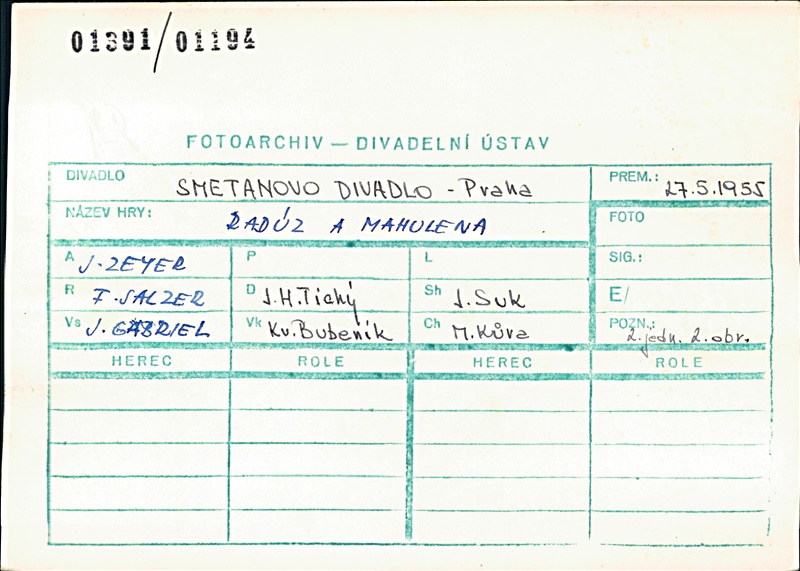 01391/01194
FOTOARCHIV — DIVADELNÍ ÚSTAV
DIVADLO SMETANOVO DIVADLO - Praha PREM.: 27.5.1955
NÁZEV HRY: RADÚZ A MAHULENA FOTO
A J. ZEYER P L SIG.:
R F. SALZER D J.H.Tichý Sh J. Suk E/
Vs J. GABRIEL Vk Kv. Bubeník Ch M. Kůra POZN.: 2. jedn. 2. obr.
HEREC ROLE HEREC ROLE